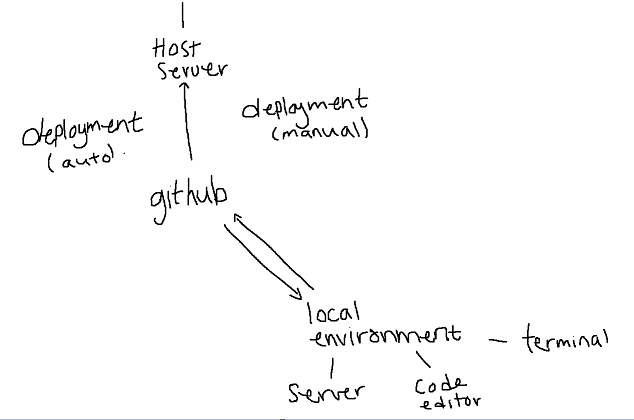 Host
Server
deployment
(manual)
deployment
(auto).
github
local
environment
terminal
Server
Code
editor